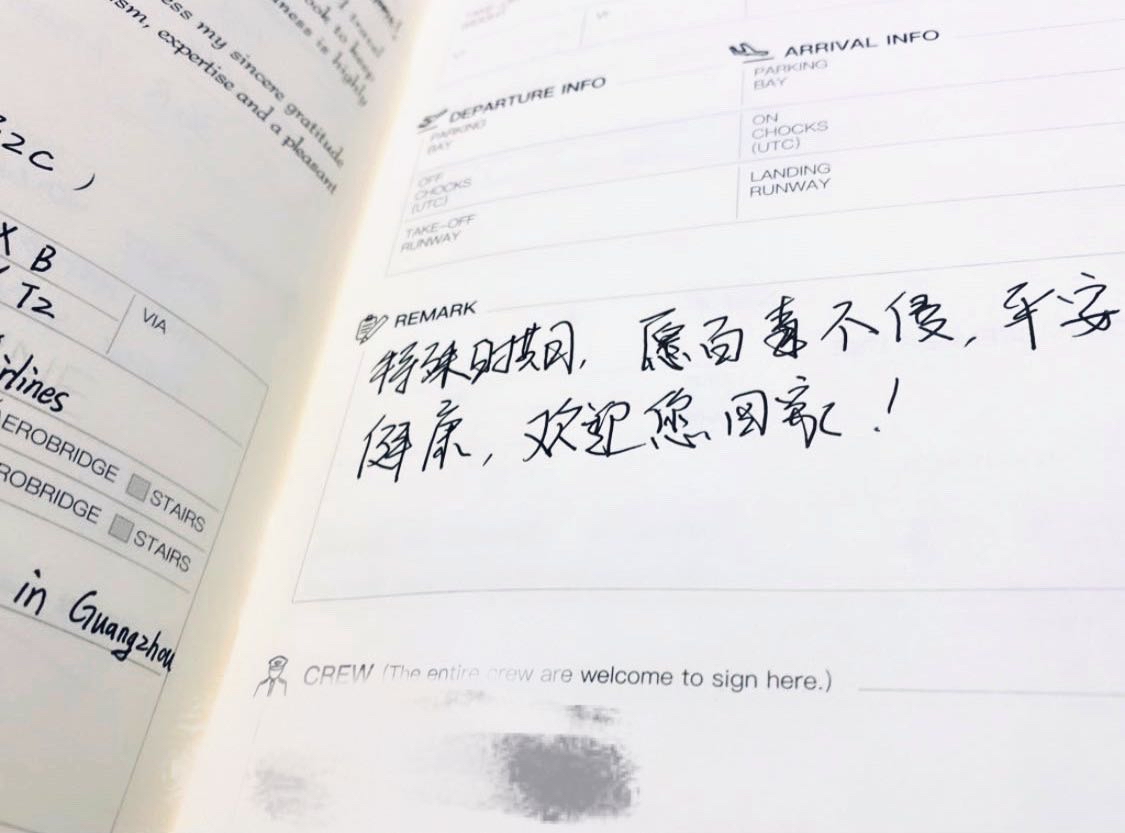 ess my sincere gratitude
ism, expertise and a pleasant
ness is highly
32C )
X B
T2
VIA
irlines
AEROBRIDGE STAIRS
AEROBRIDGE STAIRS
in Guangzhou
DEPARTURE INFO
PARKING
BAY
OFF
CHOCKS
(UTC)
TAKE-OFF
RUNWAY
ARRIVAL INFO
PARKING
BAY
ON
CHOCKS
(UTC)
LANDING
RUNWAY
REMARK
特殊时期,愿百毒不侵,平安
健康,欢迎您回家!
CREW (The entire crew are welcome to sign here.)